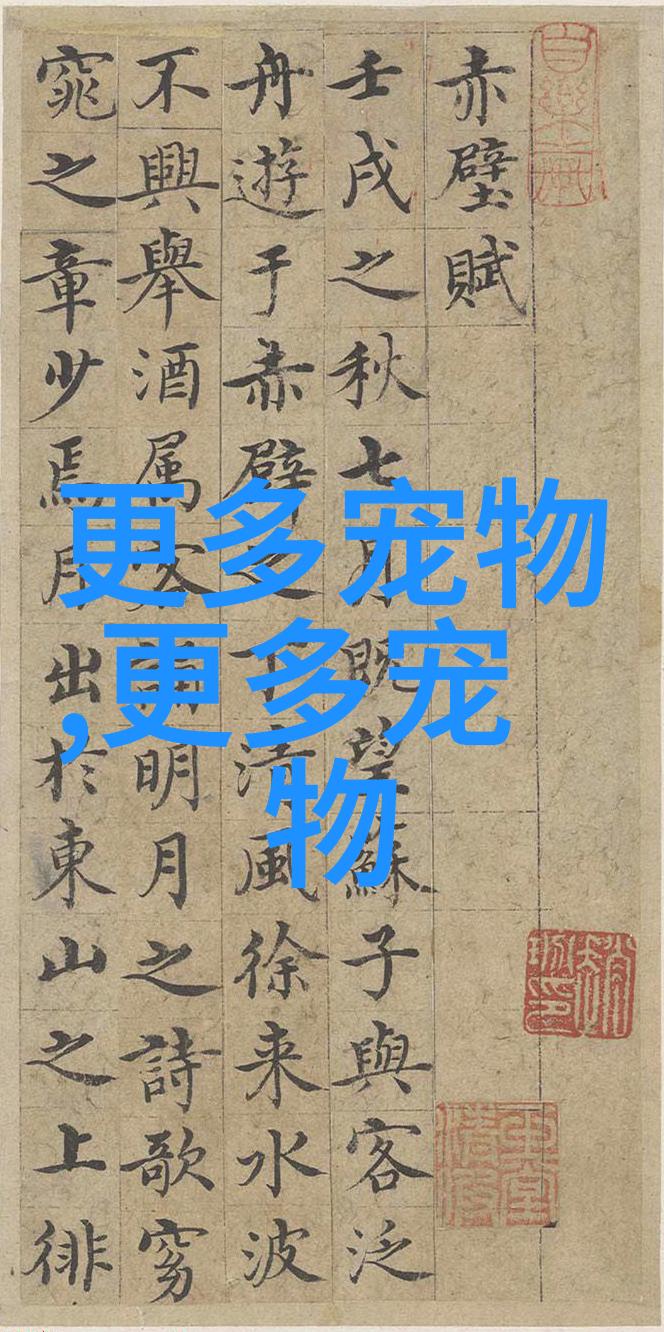 赤壁賦
壬戌之秋七月既望蘇子與客泛
舟遊于赤壁之下清風徐来水波
不興舉酒属客誦明月之詩歌窈
窕之章少焉月出於東山之上徘
更多宠物
,更多宠
物